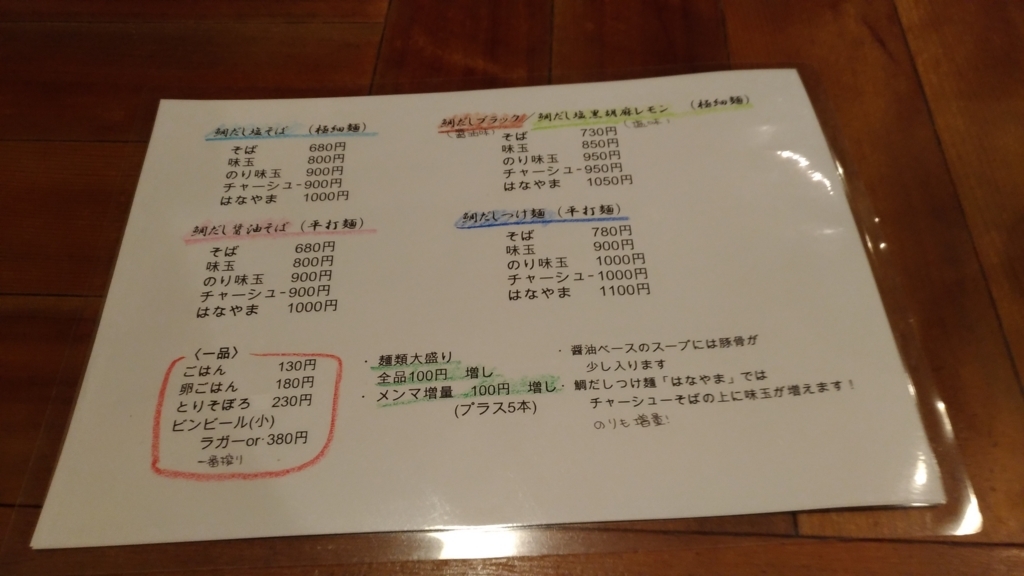 鯛だし塩そば (極細麺)
そば 680円
味玉 800円
のり味玉 900円
チャーシュー900円
はなやま 1000円
鯛だし醤油そば (平打麺)
そば 680円
味玉 800円
のり味玉 900円
チャーシュー900円
はなやま 1000円
鯛だしブラック/鯛だし塩黒胡麻レモン (極細麺)
(醤油味) (塩味!
そば 730円
味玉 850円
のり味玉 950円
チャーシュー950円
はなやま 1050円
鯛だしつけ麺 (平打麺)
そば 780円
味玉 900円
のり味玉 1000円
チャーシュー1000円
はなやま 1100円
〈一品〉
ごはん 130円
卵ごはん 180円
とりそぼろ 230円
ビンビール(小)
ラガーor 380円
一番搾り
・麺類大盛り
全品100円 増し
・メンマ増量 100円 増し
(プラス5本)
・醤油ベースのスープには豚骨が
少し入ります
・鯛だしつけ麺「はなやま」では
チャーシューそばの上に味玉が増えます!
のりも増量!